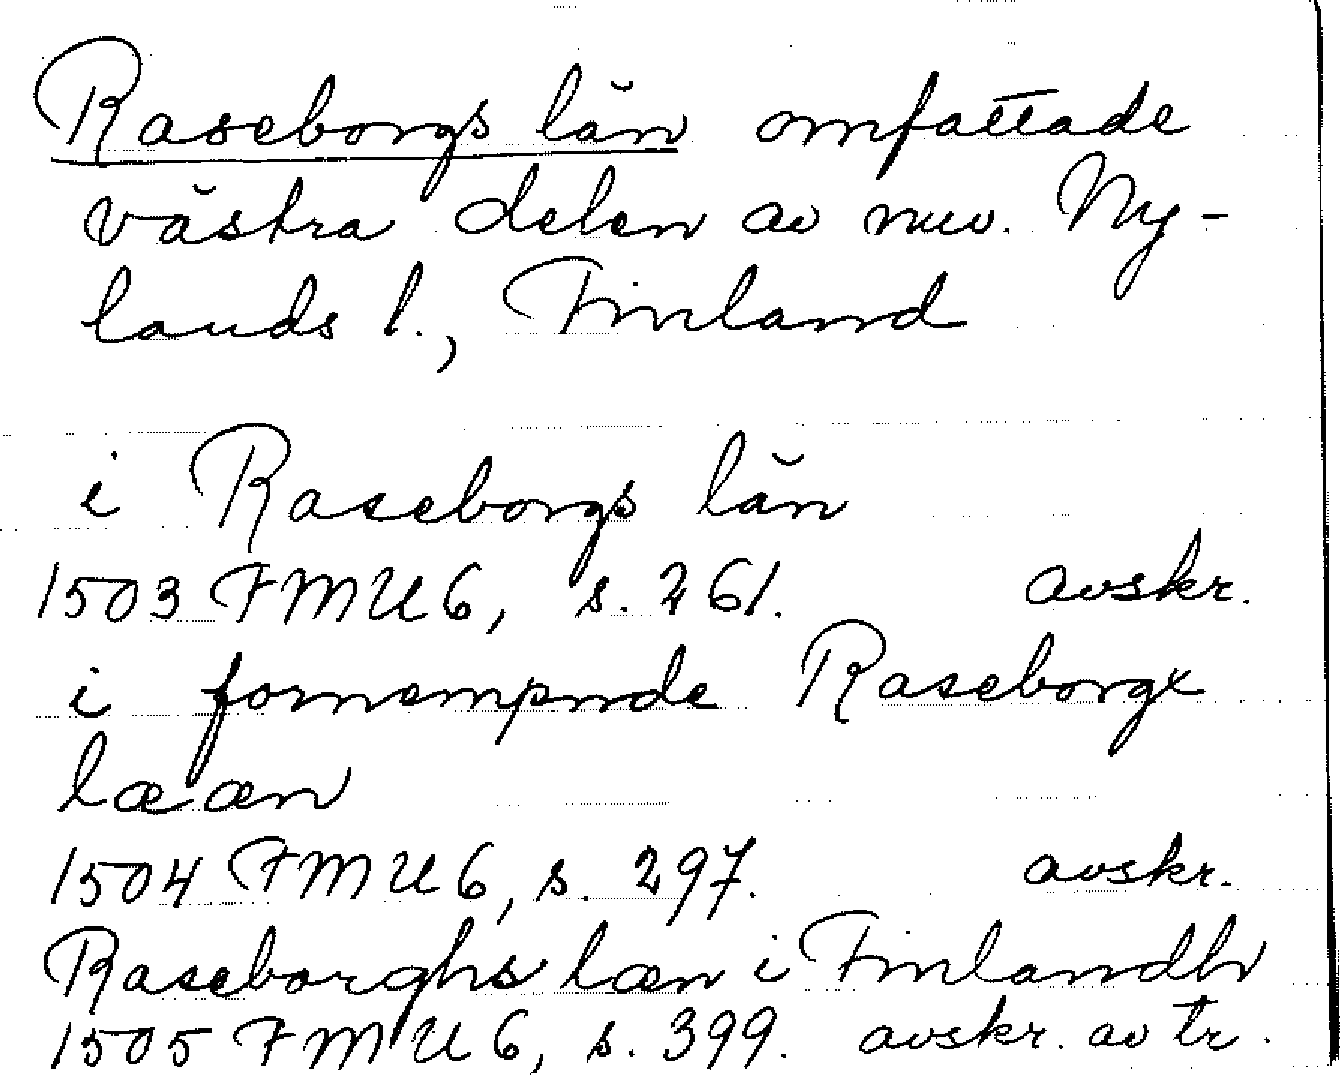 Raseborgs län omfattade
västra delen av nuv. Ny-
lands l., Finland
i Raseborgs län
1503 FMU 6, s. 261. avskr.
i fornempnde Raseborgx
lææn
1504 FMU 6, s. 297. avskr.
Raseborghs læn i Finlandh
1505 FMU 6, s. 399. avskr. av tr.